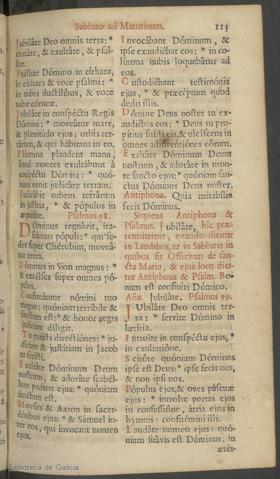 Sabbato ad Matutinum. 115
Iubiláte Deo omnis terra: *
cantáte, & exultáte, & psál-
lite.
Psállite Dómino in cíthara,
in cíthara & voce psalmi: *
in tubis ductílibus, & voce
tubæ córneæ.
Iubiláte in conspéctu Regis
Dómini: * moveátur mare,
& plenitúdo ejus; orbis ter-
rárum, & qui hábitant in eo.
Flúmina plaudent manu;
simul montes exultábunt à
conspéctu Dómini: * quó-
niam venit judicáre terram.
Judicábit orbem terrárum
in justítia, * & pópulos in
æquitáte. Psalmus 98.
Dóminus regnávit, iras-
cántur pópuli: * qui se-
det super Chérubim, moveá-
tur terra.
Dóminus in Sion magnus: *
& excélsus super omnes pó-
pulos.
Confiteántur nómini tuo
magno; quóniam terríbile &
sanctum est: * & honor regis
judícium díligit.
Tu parásti directiónes: * ju-
dícium & justítiam in Jacob
tu fecísti.
Exaltáte Dóminum Deum
nostrum, & adoráte scabél-
lum pedum ejus: * quóniam
sanctum est.
Móyses & Aaron in sacer-
dótibus ejus: * & Sámuel in-
ter eos, qui ínvocant nomen
ejus.
Invocábant Dóminum, &
ipse exaudiébat eos: * in co-
lúmna nubis loquebátur ad
eos.
Custodiébant testimónia
ejus, * & præcéptum quod
dedit illis.
Dómine Deus noster tu ex-
audiébas eos: * Deus tu pro-
pítius fuísti eis, & ulcíscens in
omnes adinventiónes eórum.
Exaltáte Dóminum Deum
nostrum, & adoráte in mon-
te sancto ejus: * quóniam san-
ctus Dóminus Deus noster.
Antiphona. Quia mirabília
fecit Dóminus.
Sequens Antiphona &
Psalmus. Jubiláte, hic præ-
termittitur, quando dicitur
in Laudibus, ut in Sabbatis in
quibus fit Officium de San-
cta Maria, & ejus loco dici-
tur Antiphona & Psalm. Bo-
num est confitéri Dómino.
Aña. Jubiláte. Psalmus 99.
Jubiláte Deo omnis ter-
ra: * servíte Dómino in
lætítia.
Introíte in conspéctu ejus, *
in exultatióne.
Scitóte quóniam Dóminus
ipse est Deus: * ipse fecit nos,
& non ipsi nos.
Pópulus ejus, & oves páscuæ
ejus: * introíte portas ejus
in confessióne, átria ejus in
hymnis: confitémini illi.
Laudáte nomen ejus: quó-
niam suávis est Dóminus, in
ætér-
Biblioteca de Galicia